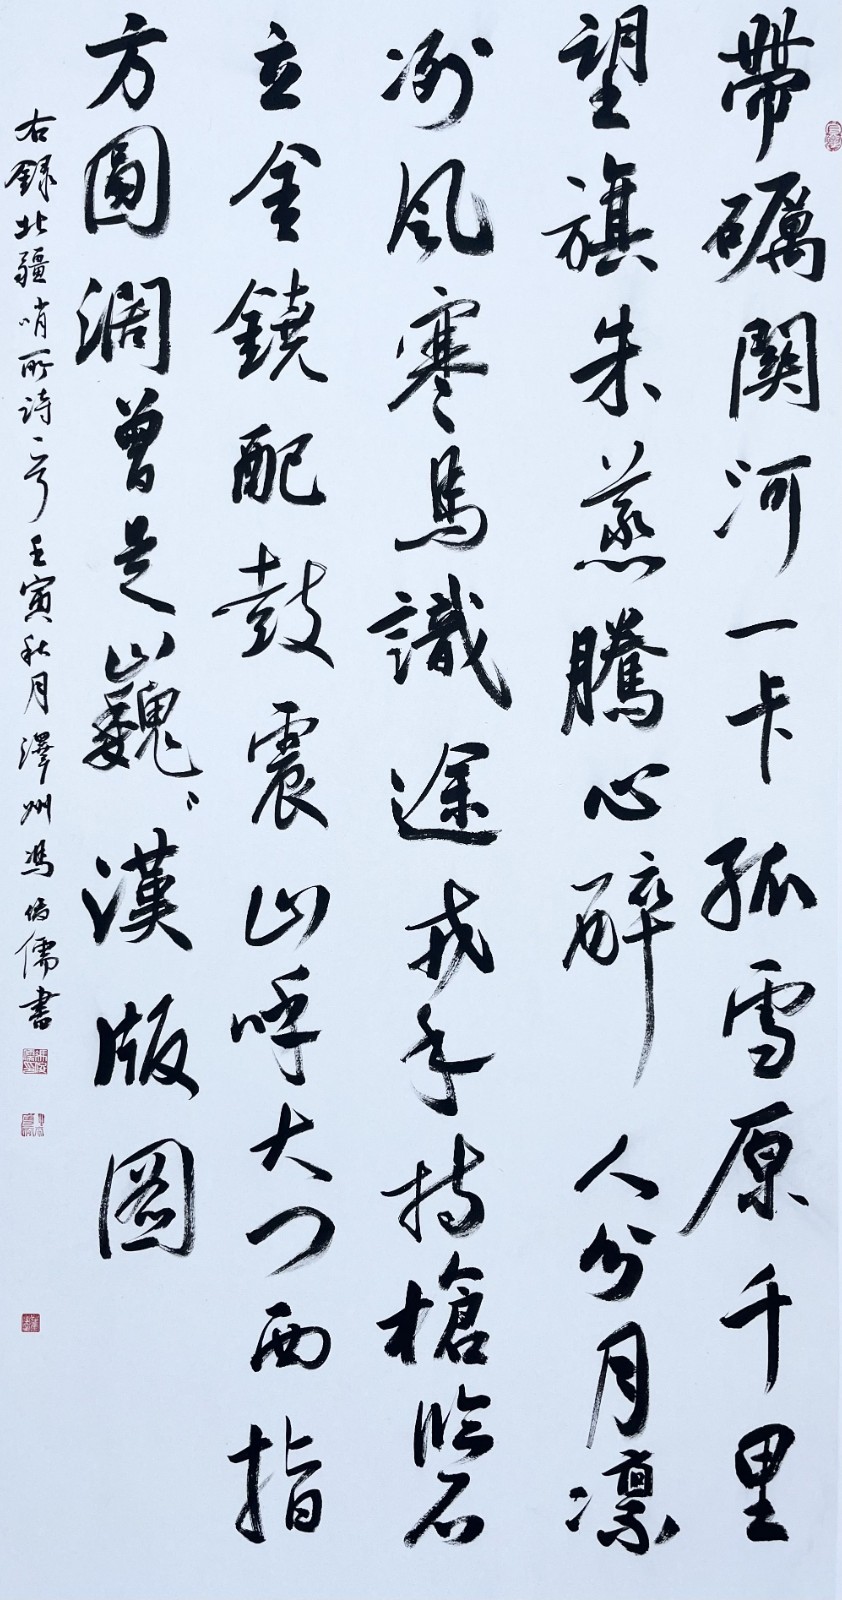 帶礪關河一卡孤雪原千里
望旗朱蒸騰心醉人分月凜
冽風寒馬識途戎手持槍臨石
立金鐃配鼓震山呼大門西指
方圓濶曾是巍巍漢版圖
右錄北疆哨所詩二首壬寅秋月澤州馮儒書